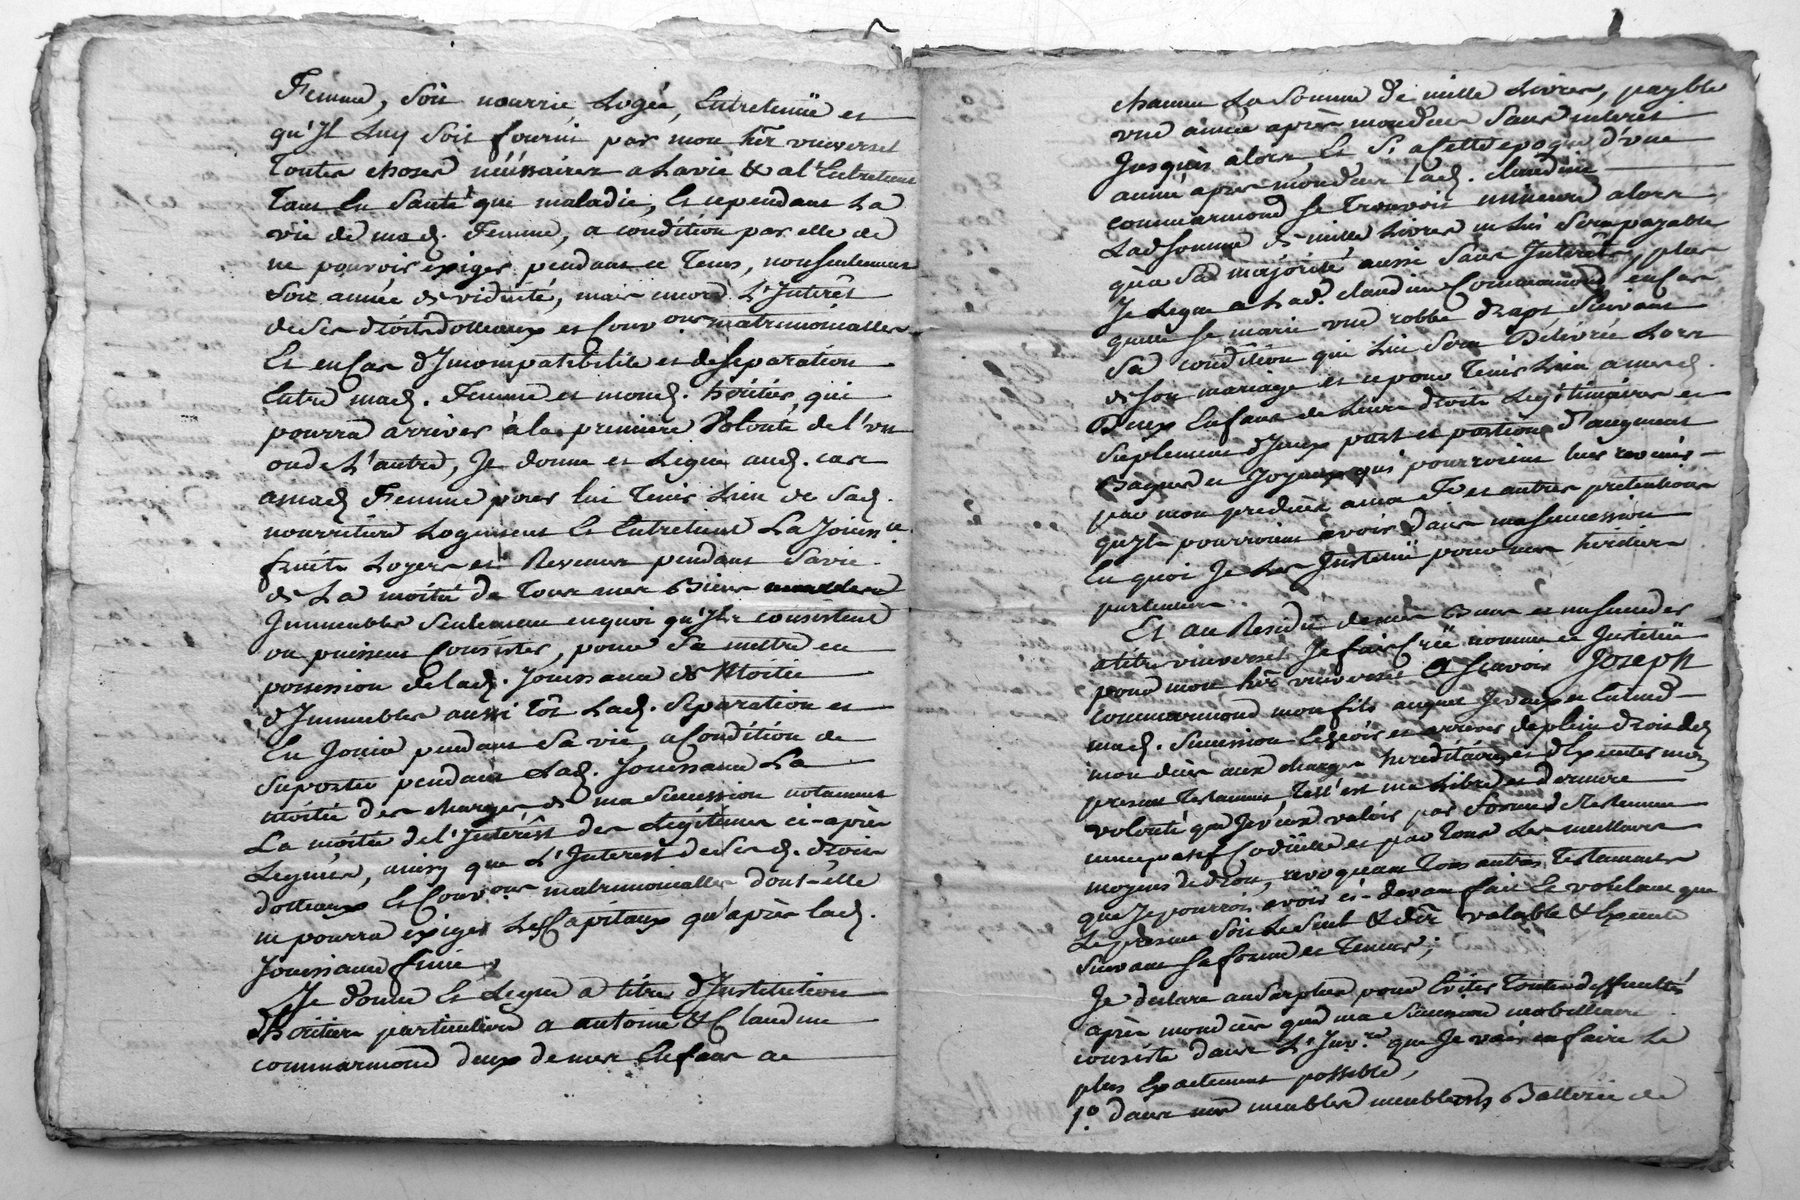 Femme, soit nourrie, Logée, Entretenüe et
qu'Il Luy soit fourni par mon hér universel
Toutes choses nécéssaires a La vie & a l'Entretient
Tant En Santé que maladie, Et cependant La
vie de mad. Femme, a condition par elle de
ne pouvoir exiger pendant ce Tems, non seulement
son année de viduité, mais encore L'Interêt
de Ses droits dotteaux et Conv ons matrimonialles
Et en Cas d'Incompatibilité et de Separation
Entre mad. Femme et mond. héritier, qui
pourra arriver à la premiere Volonté de l'un
ou de L'autre, Je donne et Legue aud. cas
a mad Femme pour lui Tenir Lieu de Sad.
nourriture Logement Et Entretient La Jouissce
fruits Loyers et Revenus pendant Sa vie
de La moitié de Tous mes Biens
Immeubles Seulement en quoi qu'Ils consistent
ou puissent Consister, pour Se mettre en
possession de lad. Jouissance de Moitié
d'Immeubles aussi Tôt Lad. Séparation et
En Jouir pendant Sa vie, a Condition de
Suporter pendant Lad. Jouissance La
moitié des charges de ma Succession notament
La moitié de l'Interêst des Legitimes ci-après
Leguées, ainsy que L'Interest de Ses d. droits
dotteaux Et Conv ons matrimonialles dont-elle
ne pourra exiger Les Capitaux qu'après lad.
Jouissance finie,
Je donne Et Legue a titre d'Institution
d'héritiers particuliere a antoine & Claudine
commarmond deux de mes Enfans a
chacun La Somme de mille Livres, payble
une année apres mon deces Sans interêt
Jusques alors, Et Si a Cette epoque d'une
année apres mon deces Lad. claudine
commarmond Se Trouvoit mineure alors
Lad Somme de mille Livres ne lui Sera payable
qu'a Sa majorité aussi Sans Interêt, plus
Je Legue a Lad. claudine Commarmond en Cas
quelle Se marie une robbe drapt Suivant
Sa condition qui Lui Sera Délivrée Lors
de Son mariage et ce pour Tenir Lieu a mesd.
Deux Enfans de Leurs droits Legitimaires et
Suplement d'Iceux part et portion d'augment
Bagues et Joyaux qui pourroient leur revenir
par mon predécès a ma Fe et autres prétentions
qu'Ils pourroient avoir Dans ma Succession
En quoi Je Les Institüe pour mes héritiers
particuliers.
Et au Residû de mes Biens et
a titre universel Je fais Crée nomme et Institüe
pour mon hér universel a Scavoir Joseph
commarmond mon fils auquel Je veux et Entend
mad. Succession Echoir et arriver de plein droit
mon décès aux charges héréditaires et d'Executer mon
present Testament, Tell'est ma Libre et derniere
volonté que Je veux valoir par forme de Testament
nuncupatif Codicille et par Tous Les meilleurs
moyens de droit, revoquant Tous autres Testamens
que Je pourrois avoir ci-devant fait Et voulant que
Le present Soit Le Seul & dér valable & Execute
Suivant Sa forme et Teneur;
Je declare au Surplus pour Eviter Toutes difficultés
après mon décès que ma Succession mobilliaire
consiste dans L'Inv.re que Je vais en faire Le
plus Exactement possible,
1º. dans mes meubles meublans, Batterie de